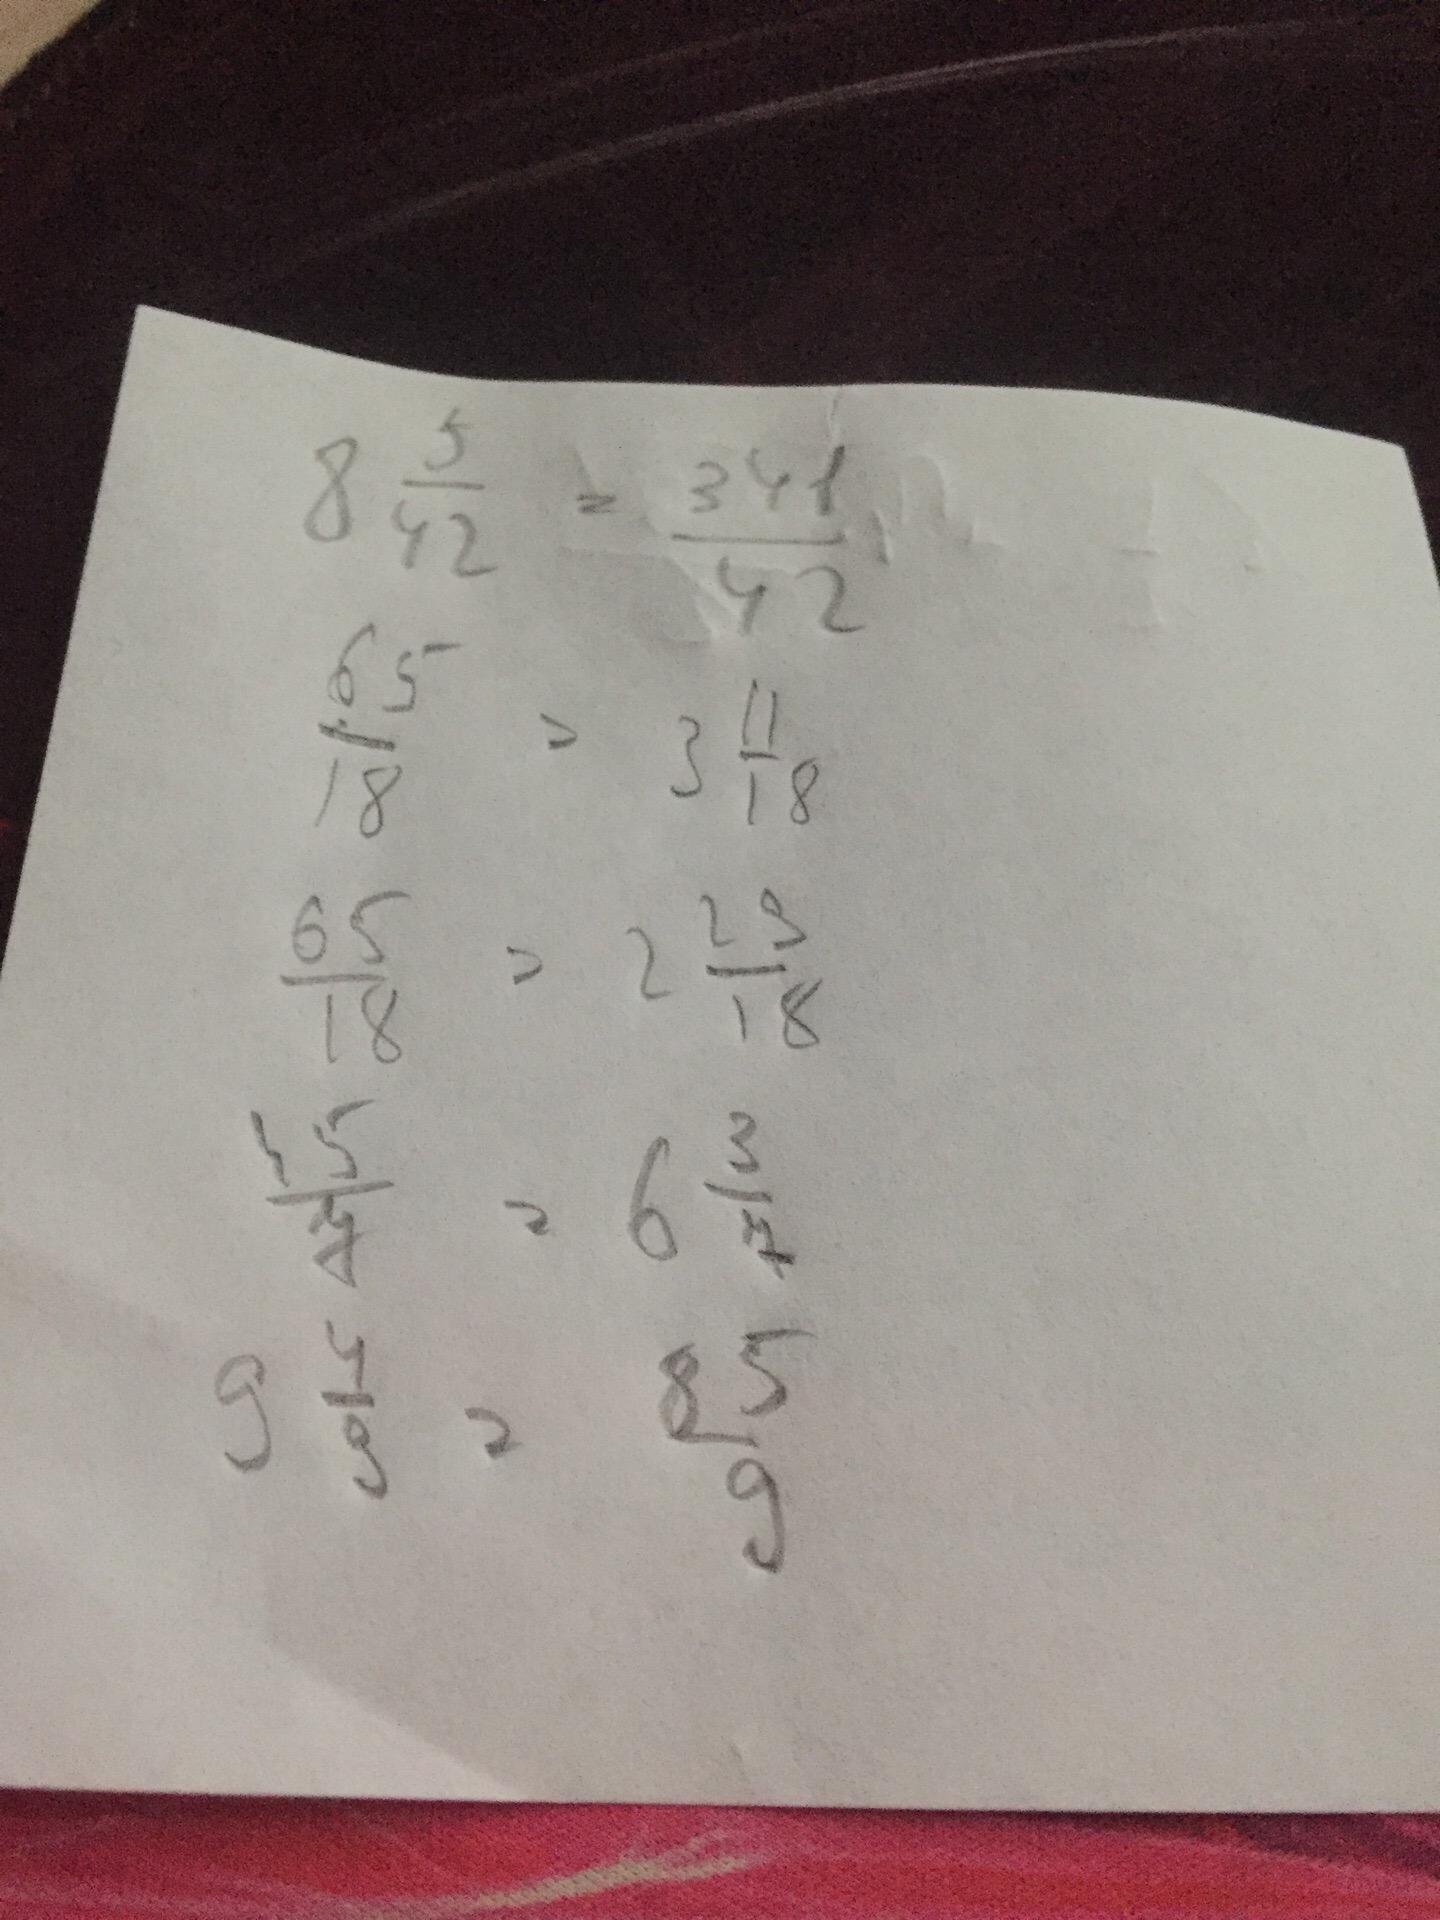 8 5/42 = 341/42
65/18 = 3 11/18
65/18 = 2 29/18
45/7 = 6 3/7
9 4/9 = 85/9